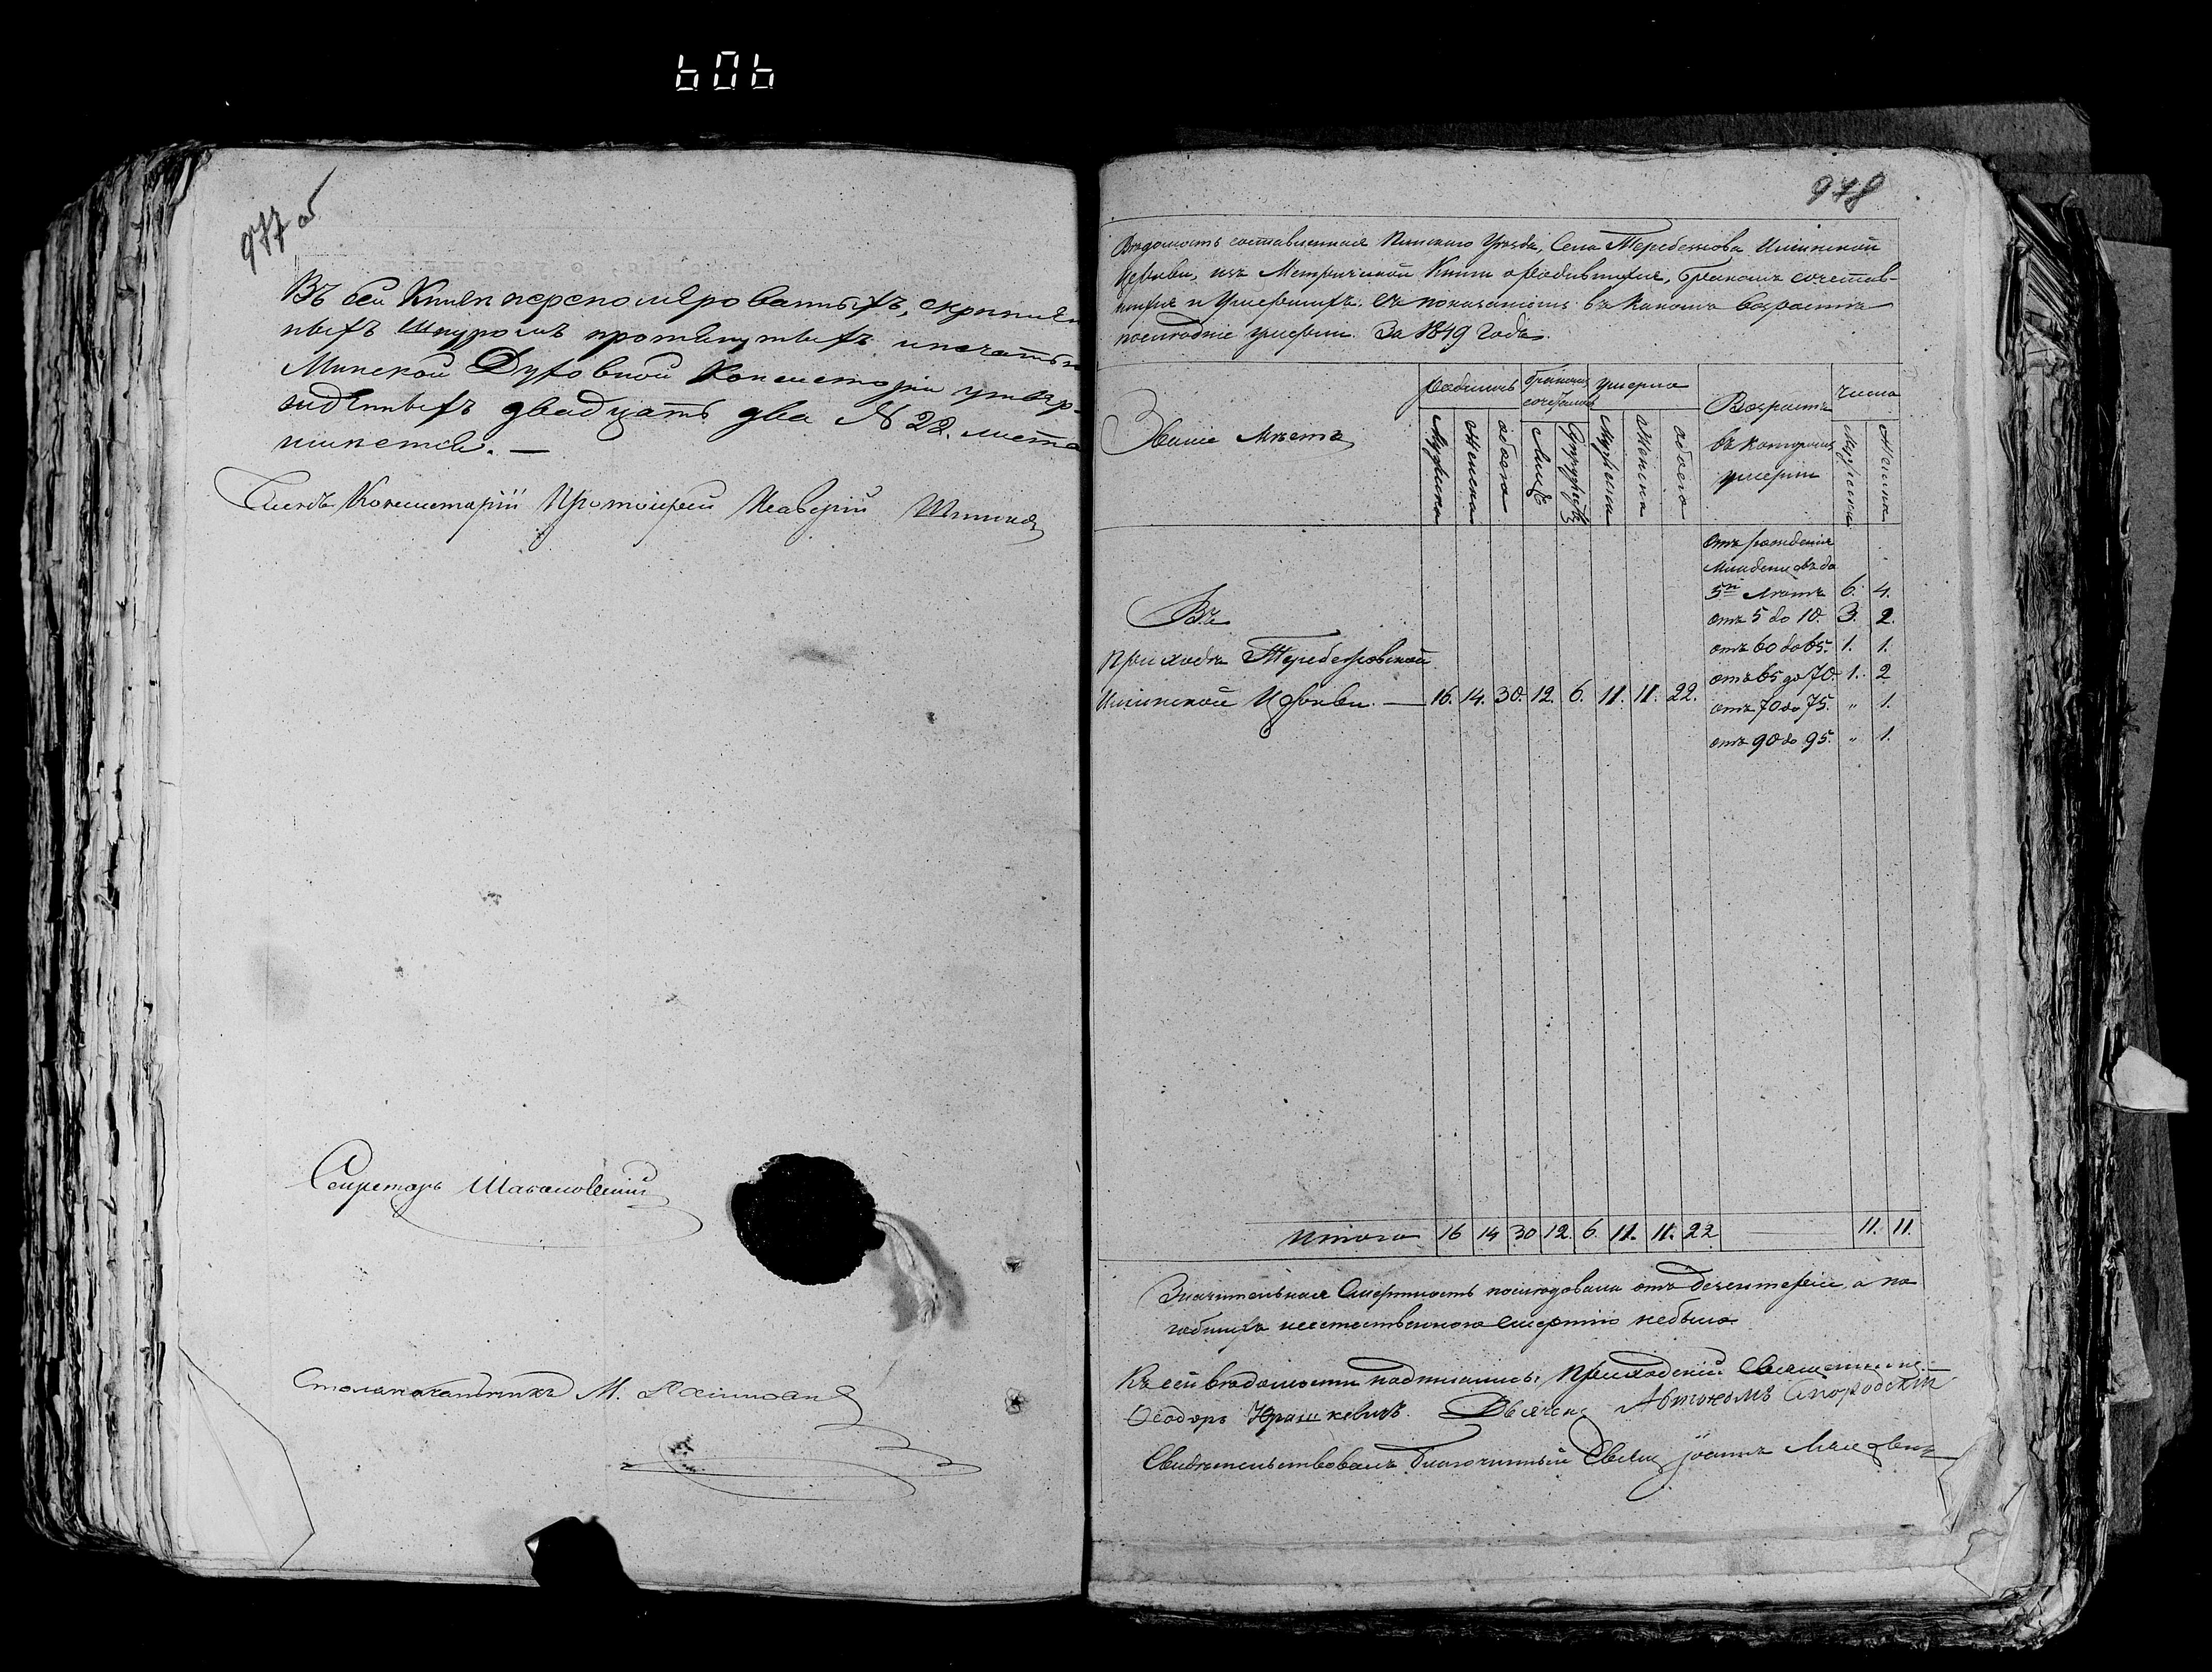 606
977 об
Въ сей Книгѣ перенумерованныхъ, скрѣплен
ныхъ Шнуромъ протянутыхъ и печатью
Минской Духовной Консисторіи утвер-
жденныхъ двадцать два № 22. листа
имѣется. —
Членъ Консисторіи Протоіерей
Секретарь
Столоначальникъ М.
978
Вѣдомость составленная Пинскаго Уѣзда, Села Теребежова Илiинской
Церкви, изъ Метрической Книги о родившихся, бракомъ сочетав-
шихся и Умершихъ. Съ показаніемъ въ какомъ возрастѣ
послѣдніе умерли. За 1849 Годъ.
Званіе Мѣстъ
родилось
бракомъ сочеталось
умерло
Возрастъ въ которомъ умерли
число
Мужеска
Женска
обоего
Лицъ
Супружествъ
Мужеска
Женска
обоего
Мужеска
Женска
отъ рожденія
Младенцевъ до
5ти Лѣтъ 6. 4.
Въ отъ 5 до 10. 3. 2.
отъ 60 до 65. 1. 1.
Приходѣ Теребежовской отъ 65 до 70. 1. 2
Илiинской Церкви. — 16. 14. 30. 12. 6. 11. 11. 22. отъ 70 до 75. „ 1.
отъ 90 до 95. „ 1.
Итого 16 14 30 12. 6. 11. 11. 22 11. 11.
Значительная Смертность послѣдовала отъ десентеріи, а по
гибшихъ неестественною смертію небыло
Къ сей вѣдомости подписались: Приходскій Священникъ
Ѳеодоръ Юрашкевичъ. Дьячекъ Автономъ
Свидѣтельствовалъ Благочинный Свящ Іоаннъ